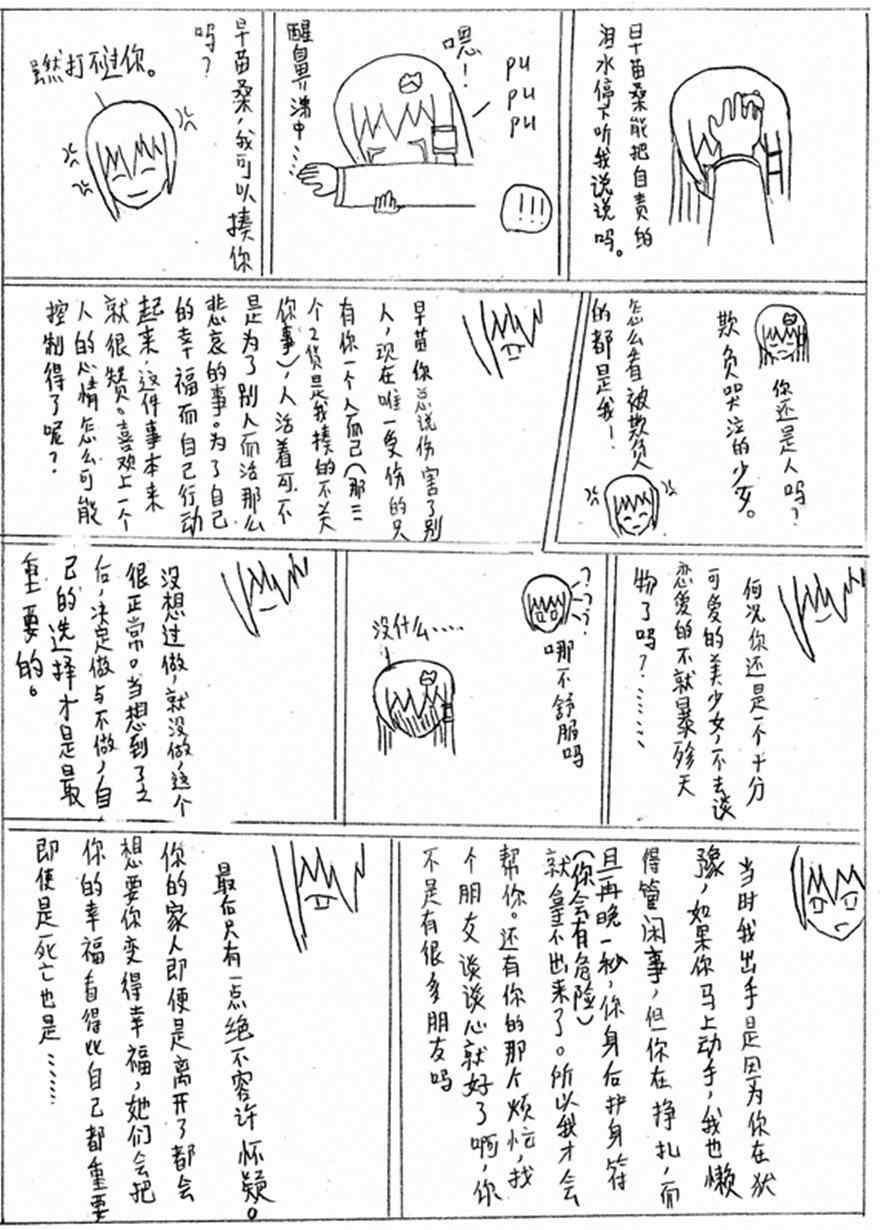 早苗桑能把自责的
泪水停下听我说说吗。
pu
pu
pu
嗯！
！！！
醒鼻涕中……
早苗桑，我可以揍你
吗？
虽然打不过你。
你还是人吗？
欺负哭泣的少女。
怎么看被欺负
的都是我！
早苗你总说伤害了别
人，现在唯一受伤的只
有你一个人而已（那三
个2货是我揍的不关
你事），人活着可不
是为了别人而活那么
悲哀的事。为了自己
的幸福而自己行动
起来，这件事本来
就很赞。喜欢上一个
人的心情怎么可能
控制得了呢？
何况你还是一个十分
可爱的美少女，不去谈
恋爱的不就暴殄天
物了吗？………
？
？
？
哪不舒服吗
没什么……
没想过做，就没做，这个
很正常。当想到了之
后，决定做与不做，自
己的选择才是最
重要的。
当时我出手是因为你在犹
豫，如果你马上动手，我也懒
得管闲事，但你在挣扎，而
且再晚一秒，你身后护身符
（你会有危险）
就拿不出来了。所以我才会
帮你。还有你的那个烦恼，找
个朋友谈谈心就好了啊，你
不是有很多朋友吗
最后只有一点绝不容许怀疑。
你的家人即便是离开了都会
想要你变得幸福，她们会把
你的幸福看得比自己都重要
即使是死亡也是……